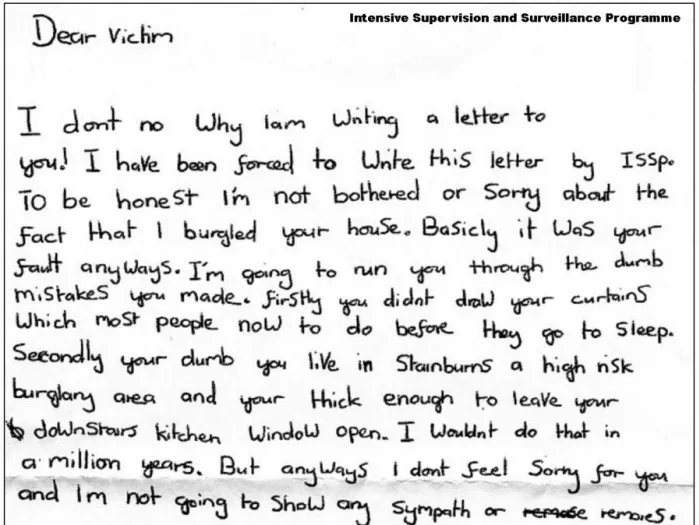 Intensive Supervision and Surveillance Programme
Dear Victim
I dont no Why Iam Writing a letter to
you! I have been forced to Write this letter by ISSp.
To be honest I'm not bothered or Sorry about the
fact that I burgled your house. Basicly it was your
fault anyways. I'm going to run you through the dumb
mistakes you made. firstly you didnt draw your curtains
Which most people now to do before they go to sleep.
Secondly your dumb you live in Stainburns a high risk
burglary area and your thick enough to leave your
downstairs kitchen window open. I wouldnt do that in
a million years. But anyways I dont feel Sorry for you
and Im not going to show any sympath or remose remores.